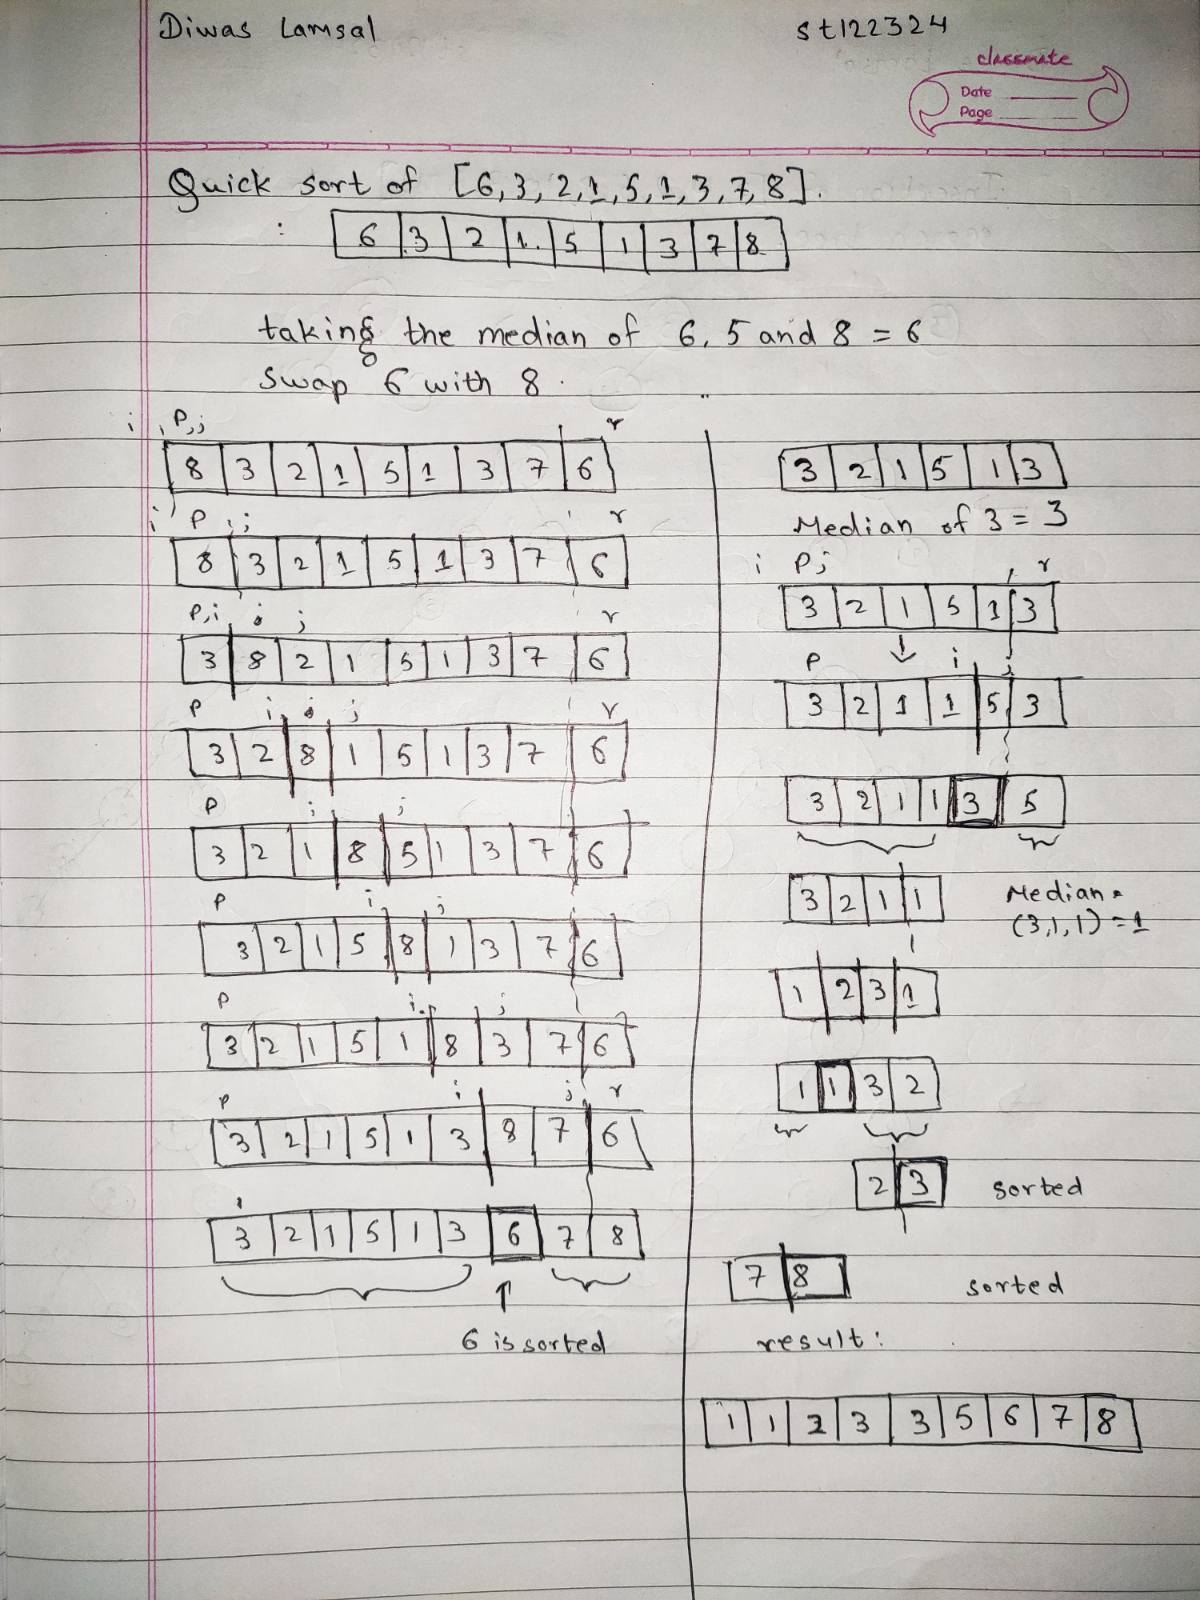 Diwas Lamsal
st122324
classmate
Date
Page
Quick sort of [6, 3, 2, 1, 5, 1, 3, 7, 8].
: 6 3 2 1 5 1 3 7 8
taking the median of 6, 5 and 8 = 6
swap 6 with 8.
i, P, j r
8 3 2 1 5 1 3 7 6
i P j r
8 3 2 1 5 1 3 7 6
P, i j r
3 8 2 1 5 1 3 7 6
P i j r
3 2 8 1 5 1 3 7 6
P i j
3 2 1 8 5 1 3 7 6
P i j
3 2 1 5 8 1 3 7 6
P i j
3 2 1 5 1 8 3 7 6
P i j r
3 2 1 5 1 3 8 7 6
3 2 1 5 1 3 6 7 8
↑
6 is sorted
3 2 1 5 1 3
Median of 3 = 3
i P j r
3 2 1 5 1 3
↓
P i j
3 2 1 1 5 3
3 2 1 1 3 5
3 2 1 1
Median =
(3,1,1) = 1
1 2 3 1
1 1 3 2
2 3 sorted
7 8 sorted
result:
1 1 2 3 3 5 6 7 8